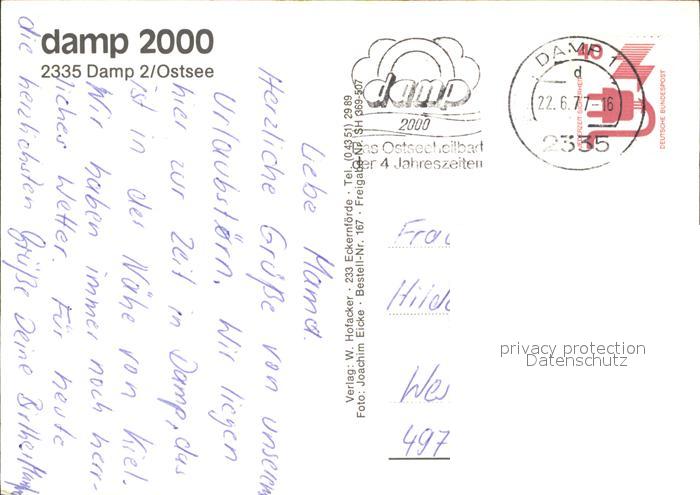 damp 2000
2335 Damp 2/Ostsee
Liebe Mama.
Herzliche Grüße von unserem
Urlaubstörn. Wir liegen
hier zur Zeit in Damp, das
ist in der Nähe von Kiel.
Wir haben immer noch herr-
liches Wetter. Für heute
die herzlichsten Grüße Deine
Verlag: W. Hofacker · 233 Eckernförde · Tel. (0 43 51) 29 89
Foto: Joachim Eicke · Bestell-Nr. 167 · Freigabe-Nr. SH 369-507
damp
2000
Das Ostseeheilbad
der 4 Jahreszeiten
DAMP 1
d
22.6.77-16
2335
40
DEUTSCHE BUNDESPOST
Frau
Hild
Wes
497
privacy protection
Datenschutz